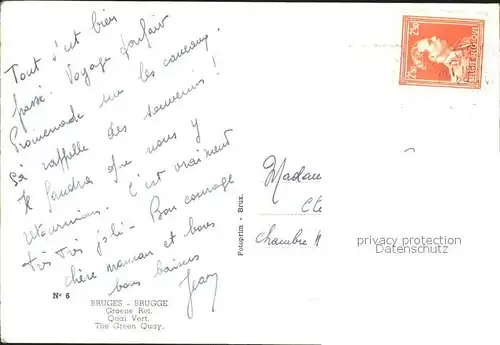 Tout s'est bien
passé. Voyage parfait
Promenade sur les canaux.
Ça rappelle des souvenirs !
Il faudra que nous y
retournions. C'est vraiment
très très joli - Bon courage
chère maman et bons
bons baisers
Jean
N° 6
BRUGES - BRUGGE
Groene Rei.
Quai Vert.
The Green Quay.
Fotoprim - Brux.
2F50
BELGIE-BELGIQUE
Madam
Chambre
privacy protection
Datenschutz